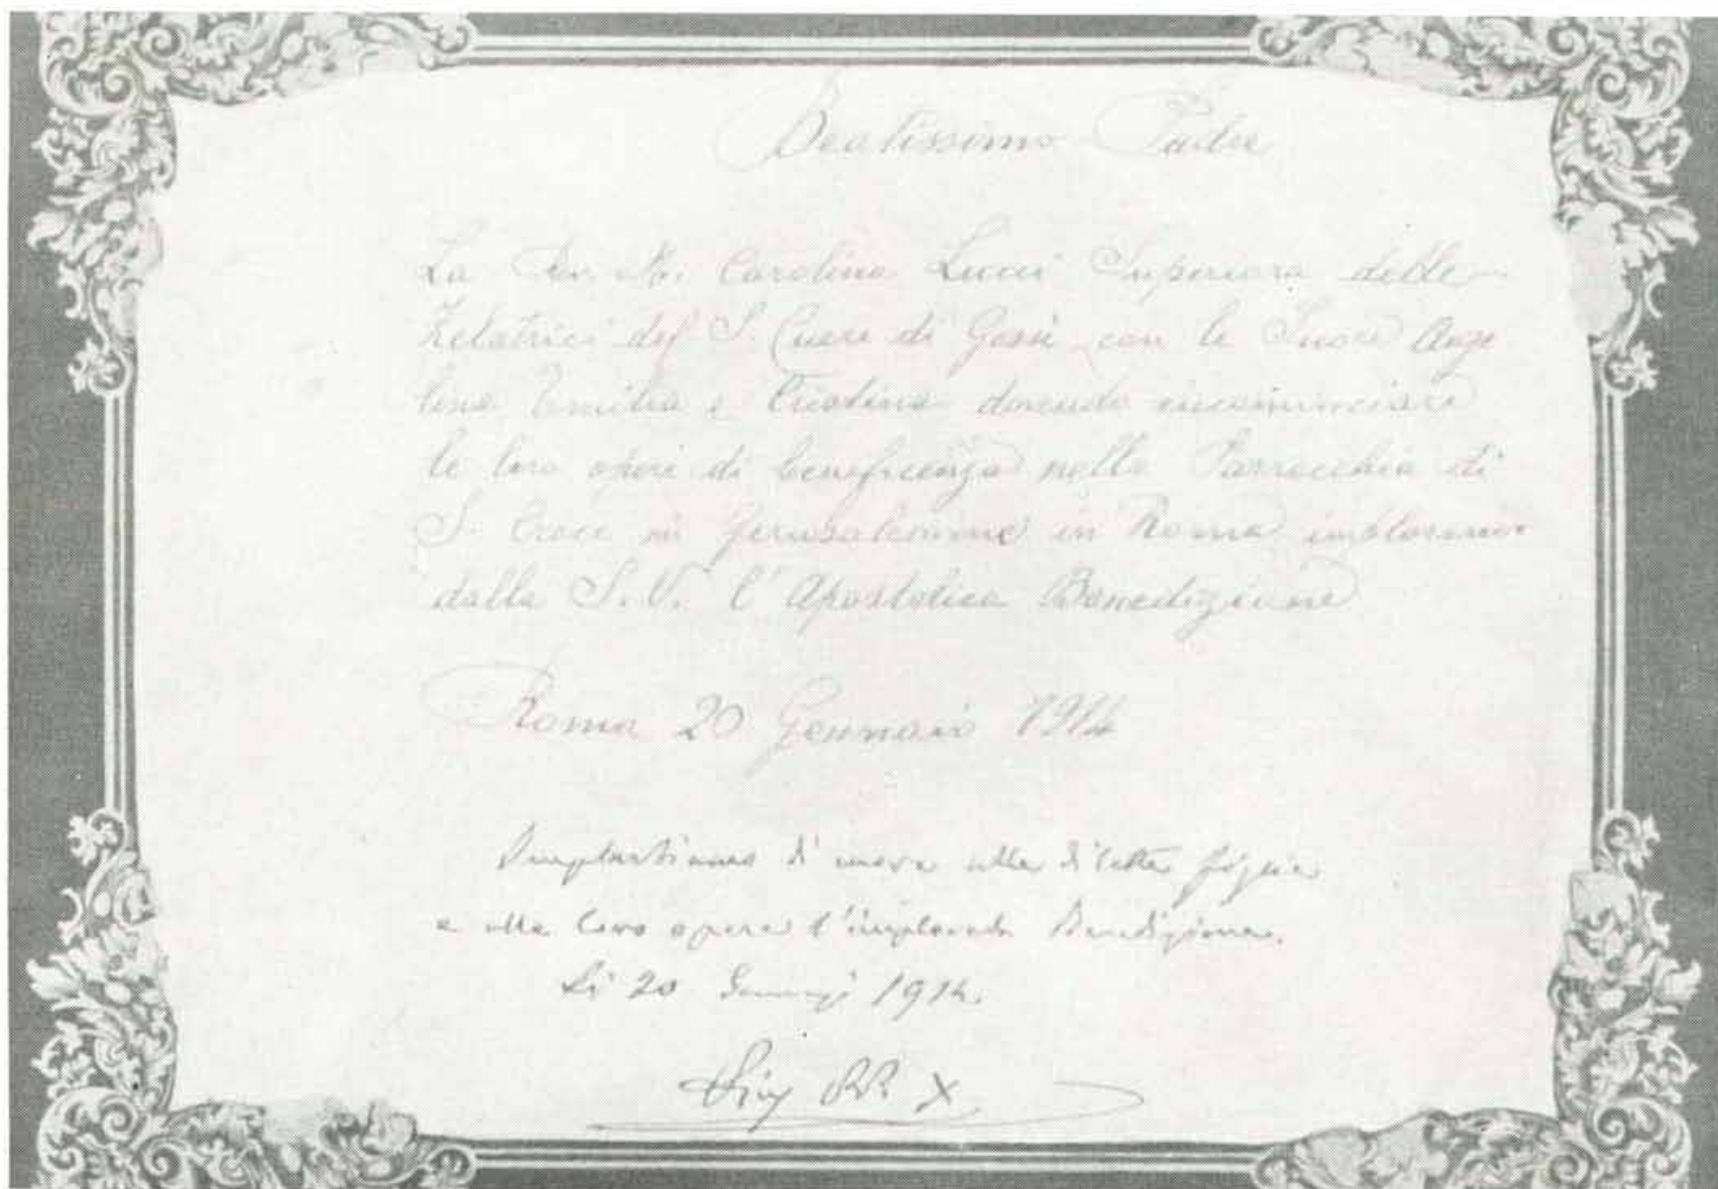 Beatissimo Padre
La Rev. M. Carolina Lucci Superiora delle
Zelatrici del S. Cuore di Gesù con le Suore Ange
lina Emilia e Cristina dovendo incominciare
le loro opere di beneficenza nella Parrocchia di
S. Croce in Gerusalemme in Roma implorano
dalla S. V. l'Apostolica Benedizione
Roma 20 Gennaio 1914
Impartiamo di cuore alle dilette figlie
e alle loro opere l'implorata Benedizione.
Li 20 1914.
Pius PP. X